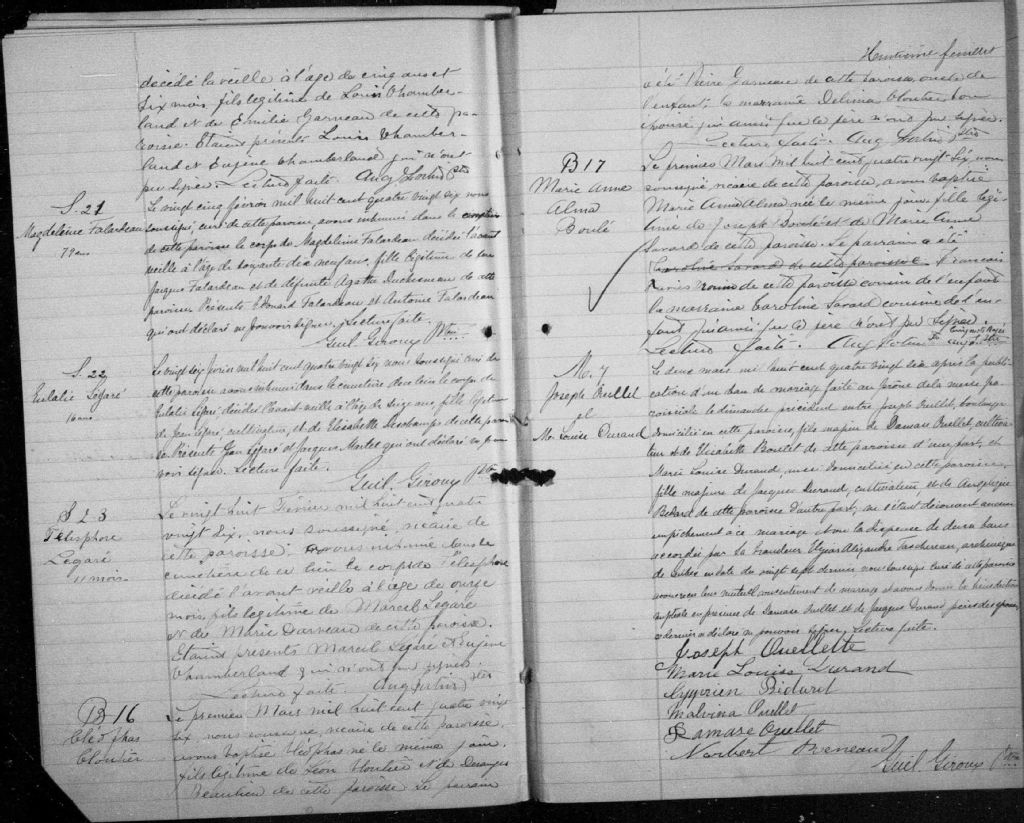 décédé la veille à l'âge de cinq ans et
six mois, fils legitime de Louis Chamber-
land et de Emilie Garneau de cette pa-
roisse. Etaient présents Louis Chamber-
land et Eugène Chamberland qui n'ont
pu signer. Lecture faite. Aug Fortin Ptre
S. 21
Magdeleine Falardeau
79 ans
Le vingt cinq février mil huit cent quatre vingt six nous
soussigné, curé de cette paroisse, avons inhumé dans le cimetière
de cette paroisse le corps de Magdeleine Falardeau décédée l'avant
veille à l'âge de soixante dix neuf ans, fille légitime de feu
Jacques Falardeau et de défunte Agathe Duchesneau de cette
paroisse. Présents Edouard Falardeau et Antoine Falardeau
qui ont déclaré ne pouvoir signer. Lecture faite.
Guil. Giroux Ptre
S. 22
Eulalie Légaré
16 ans
Le vingt six février mil huit cent quatre vingt six nous soussigné curé de
cette paroisse avons inhumé dans le cimetière de ce lieu le corps de
Eulalie Légaré décédée l'avant-veille à l'âge de seize ans, fille légitime
de Jean Légaré, cultivateur, et de Elisabeth Deschamps de cette parois-
se. Présents Jean Légaré et Jacques Martel qui ont déclaré ne pou-
voir signer. Lecture faite.
Guil. Giroux Ptre
S 23
Télesphore
Légaré
11 mois
Le vingt huit Février mil huit cent quatre
vingt six, nous soussigné, vicaire de
cette paroisse, avons inhumé dans le
cimetière de ce lieu le corps de Télesphore
décédé l'avant veille à l'âge de onze
mois, fils legitime de Marcel Légaré
et de Marie Darveau de cette paroisse.
Etaient presents Marcel Légaré et Eugène
Chamberland qui n'ont pu signer.
Lecture faite. Aug Fortin Ptre
B 16
Cléophas
Cloutier
Le premier Mars mil huit cent quatre vingt
six, nous soussigné, vicaire de cette paroisse,
avons baptisé Cléophas né le même jour,
fils légitime de Léon Cloutier et de Deranges
Beaulieu de cette paroisse. Le parrain
Huitième feuillet
a été Pierre Garneau de cette paroisse, oncle de
l'enfant, la marraine Delima Cloutier
qui ainsi que le père n'ont pu signer.
Lecture faite. Aug Fortin Ptre
B 17
Marie Anne
Alma
Boulé
Le premier Mars mil huit cent quatre vingt six, nous
soussigné vicaire de cette paroisse, avons baptisé
Marie Anne Alma née le même jour, fille légi-
time de Joseph Boulé et de Marie Anne
Savard de cette paroisse. Le parrain a été
Caroline Savard de cette paroisse François
de cette paroisse cousin de l'enfant
la marraine Caroline Savard cousine de l'en-
fant qui ainsi que le père n'ont pu signer.
Lecture faite. Aug Fortin Ptre
M. 7
Joseph Ouellet
et
Me. Louise Durand
Le deux mars mil huit cent quatre vingt six après la publi-
cation d'un ban de mariage faite au prône de la messe pa-
roissiale le dimanche précédent entre Joseph Ouellet, boulanger
domicilié en cette paroisse, fils majeur de Damase Ouellet, cultiva-
teur et de Elisabeth Boutet de cette paroisse d'une part, et
Marie Louise Durand, aussi domiciliée en cette paroisse,
fille majeure de Jacques Durand, cultivateur, et de Angelique
Bédard de cette paroisse d'autre part; ne s'étant découvert aucun
empêchement à ce mariage et vu la dispense de deux bans
accordée par Sa Grandeur Elzéar Alexandre Taschereau, archevêque
de Québec en date du vingt sept dernier nous soussigné curé de cette paroisse
avons reçu leur mutuel consentement de mariage et avons donné la bénédiction
nuptiale en présence de Damase Ouellet et de Jacques Durand pères des époux,
ce dernier a déclaré ne pouvoir signer. Lecture faite.
Joseph Ouellette
Marie Louise Durand
Cyprien Bidard
Malvina Ouellet
Damase Ouellet
Norbert
Guil. Giroux Ptre